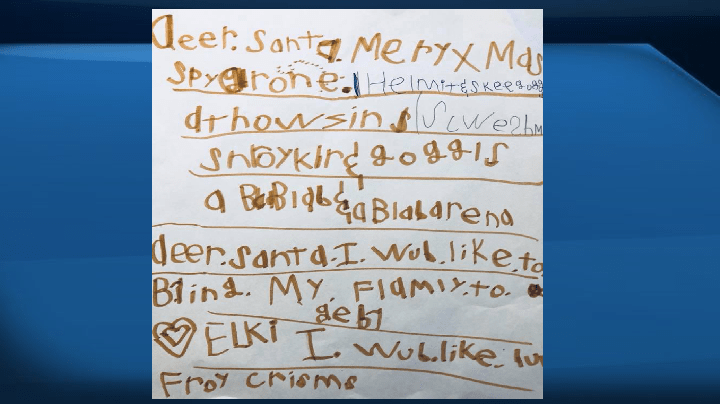 Deer. Santa. Mery X Mas
Spy drone. Helmit & skee gogg
dthowsin s
snroykling goggls
a BayBlab & a Blabarena
deer. santa. I. wub. like. to
Bring. My. Flamiy. to.
geb1
ELKi I. wub. like.
Froy crisms